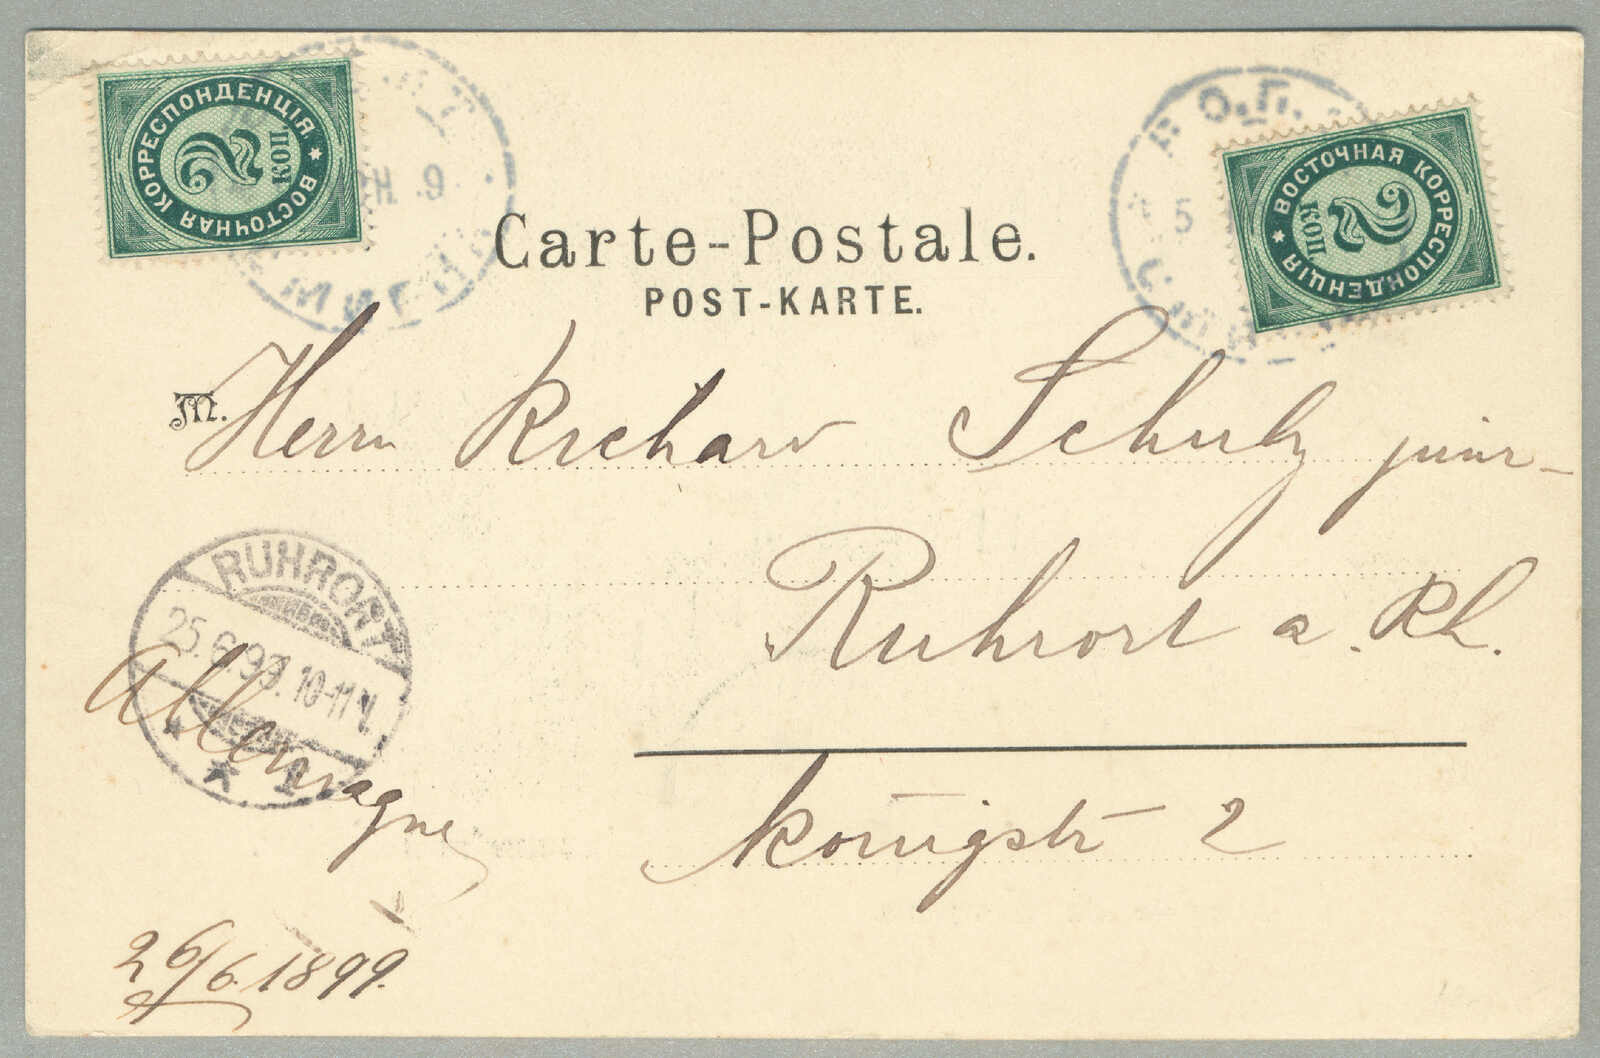 ВОСТОЧНАЯ КОРРЕСПОНДЕНЦІЯ
2 КОП
ВОСТОЧНАЯ КОРРЕСПОНДЕНЦІЯ
2 КОП
9
Р.О.П.
5
Carte-Postale.
POST-KARTE.
M. Herrn Richard Schulz junr
Ruhrort a. Rh.
RUHRORT
25.6.99. 10-11V.
* 1 *
Allemagne
Königstr 2
26/6.1899.